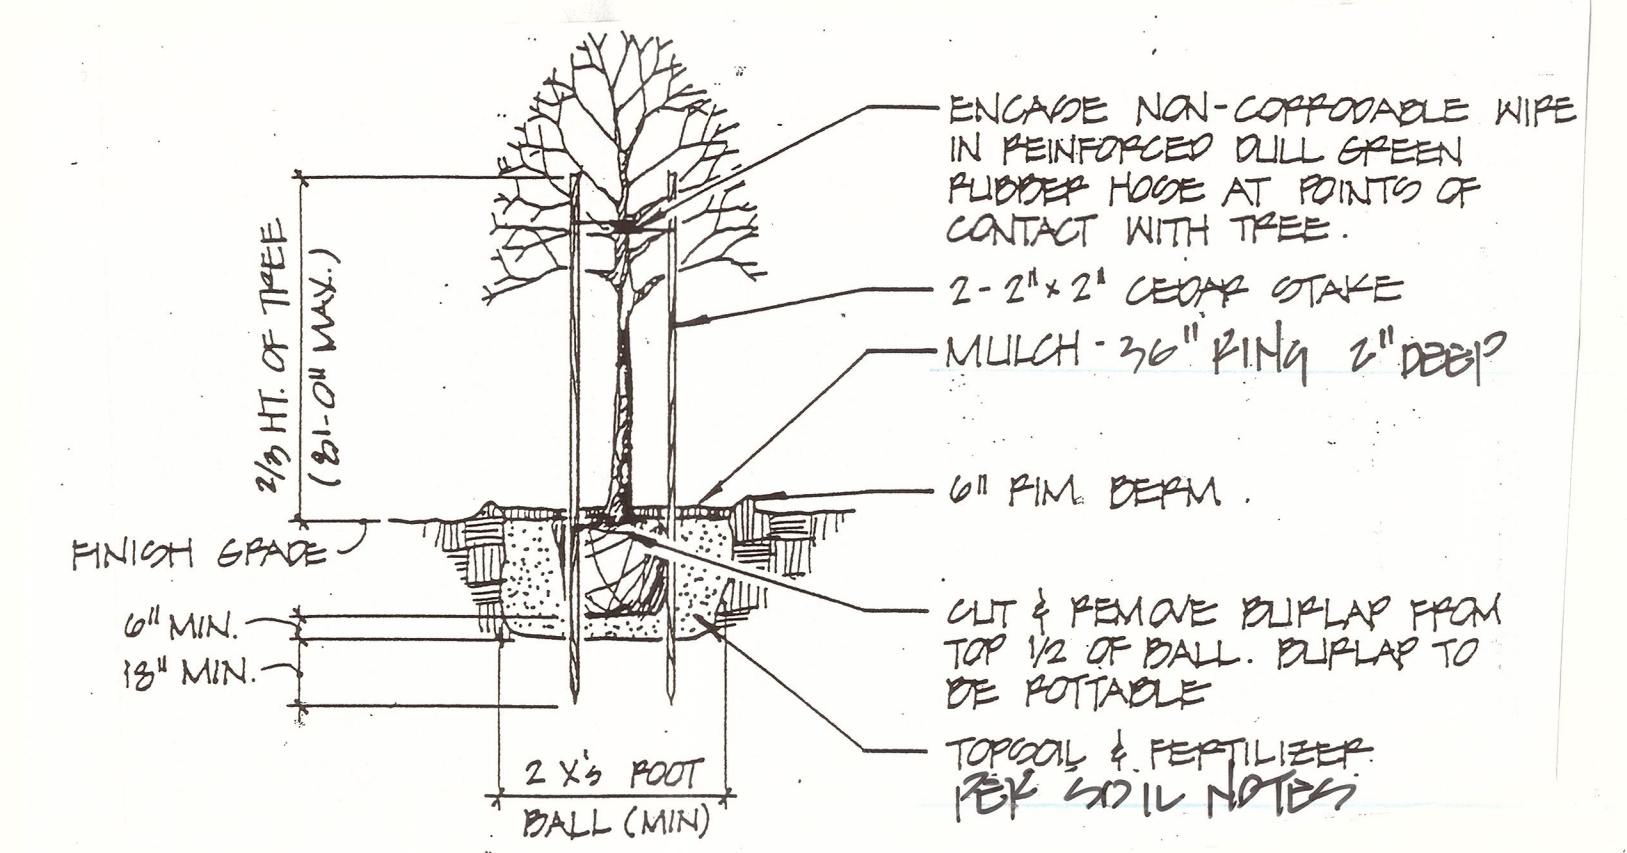 ENCASE NON-CORRODABLE WIRE
IN REINFORCED DULL GREEN
RUBBER HOSE AT POINTS OF
CONTACT WITH TREE.
2-2"x2" CEDAR STAKE
MULCH - 36" RING 2" DEEP
6" RIM BERM.
CUT & REMOVE BURLAP FROM
TOP 1/2 OF BALL. BURLAP TO
BE ROTTABLE
TOPSOIL & FERTILIZER
PER SOIL NOTES
2/3 HT. OF TREE
(8'-0" MAX.)
FINISH GRADE
6" MIN.
18" MIN.
2 X's ROOT
BALL (MIN)